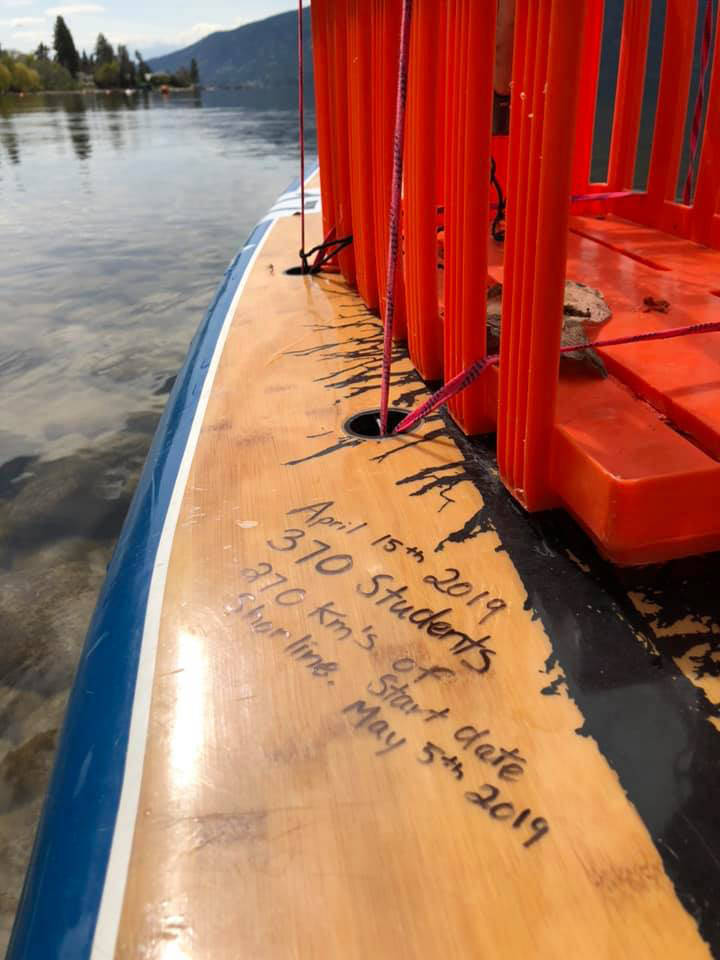 April 15th 2019
370 Students
270 Km's of
Shorline.
Start date
May 5th 2019